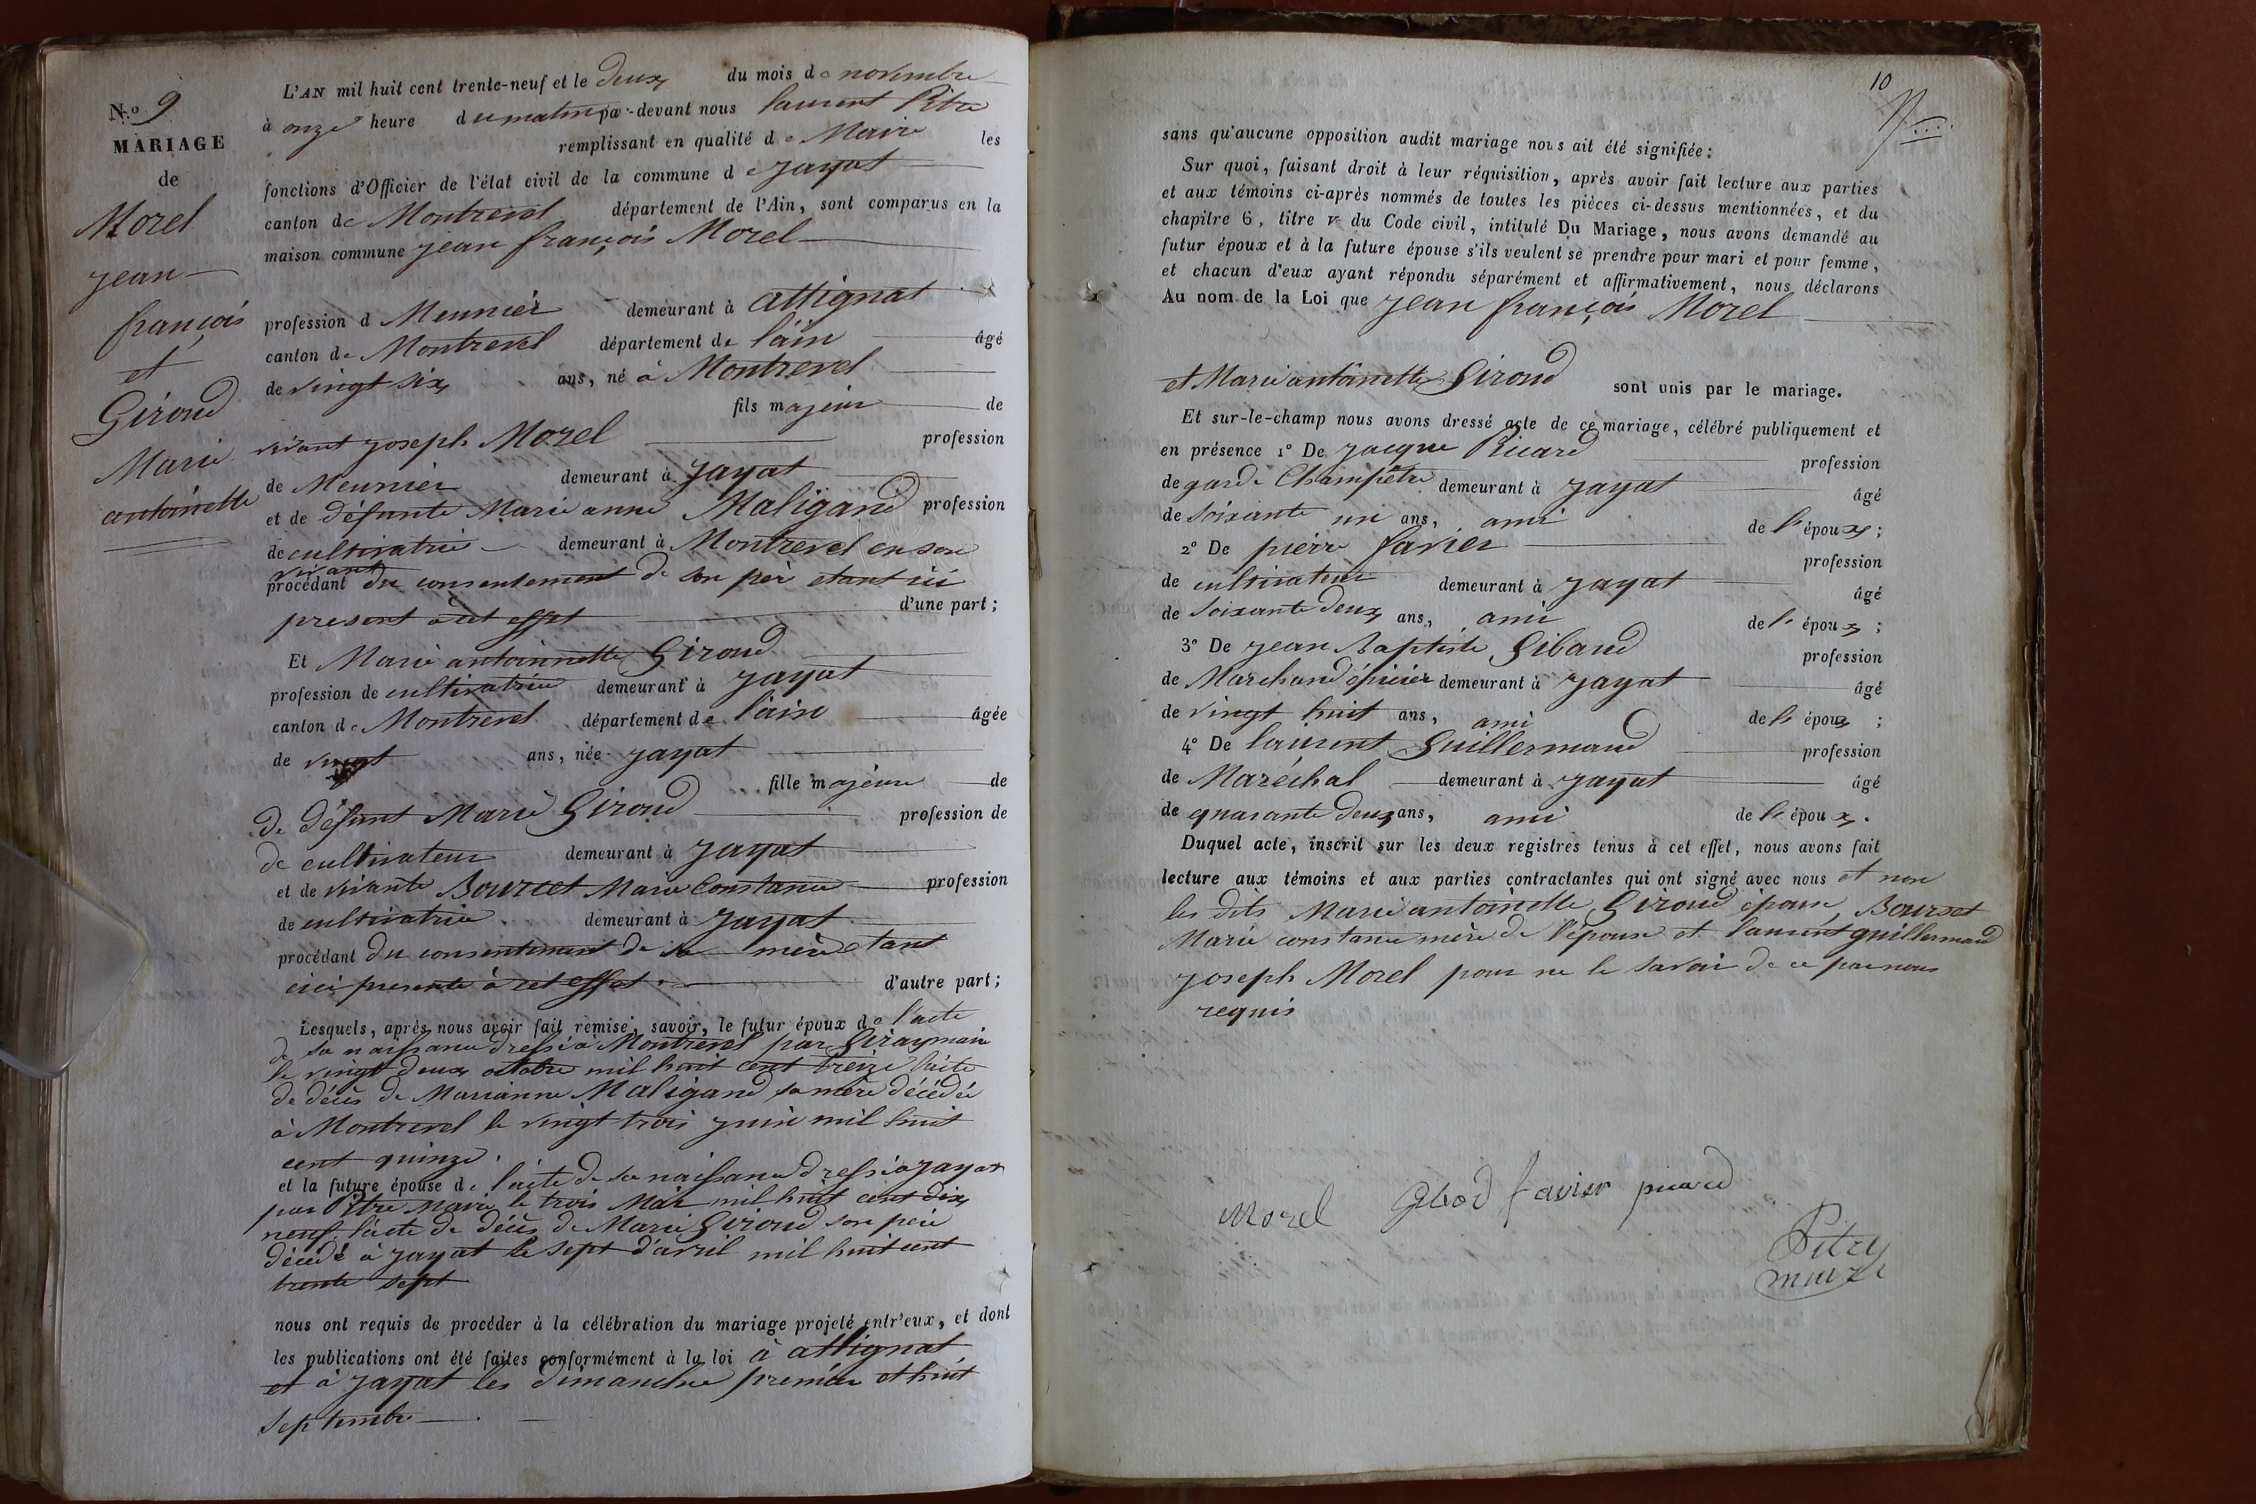 N.o 9
MARIAGE
de
Morel
jean
françois
et
Giroud
Marie
antoinette
L'AN mil huit cent trente-neuf et le deux du mois de novembre
à onze heure du matin par-devant nous laurent Pitre
remplissant en qualité de Maire les
fonctions d'Officier de l'état civil de la commune de jayat
canton de Montrevel département de l'Ain, sont comparus en la
maison commune jean françois Morel
profession d Meunier demeurant à attignat
canton de Montrevel département de l'ain âgé
de vingt six ans, né à Montrevel
fils majeur de
vivant joseph Morel profession
de Meunier demeurant à jayat
et de défunte Marie anne Maligand profession
de cultivatrice demeurant à Montrevel en son
vivant
procédant du consentement de son père etant ici
present à cet effet d'une part;
Et Marie antoinnette Giroud
profession de cultivatrice demeurant à jayat
canton de Montrevel département de l'ain âgée
de vingt ans, née jayat
fille majeure de
de défunt Marie Giroud profession de
de cultivateur demeurant à jayat
et de vivante Bourcet Marie Constance profession
de cultivatrice demeurant à jayat
procédant du consentement de sa mère etant
ici presente à cet effet d'autre part;
Lesquels, après nous avoir fait remise, savoir, le futur époux de l'acte
de sa naissance dressé à Montrevel par Giray maire
le vingt deux octobre mil huit cent treize l'acte
de décès de Marianne Maligand sa mère décédée
à Montrevel le vingt trois juin mil huit
cent quinze.
et la future épouse de l'acte de sa naissance dressé à jayat
par Pitre Maire le trois Mar mil huit cent dix
neuf l'acte de décès de Marie Giroud son père
décédé à jayat le sept d'avril mil huit cent
trente sept
nous ont requis de procéder à la célébration du mariage projeté entr'eux, et dont
les publications ont été faites conformément à la loi à attignat
et à jayat les dimanche premier et huit
septembre
10
sans qu'aucune opposition audit mariage nous ait été signifiée:
Sur quoi, faisant droit à leur réquisition, après avoir fait lecture aux parties
et aux témoins ci-après nommés de toutes les pièces ci-dessus mentionnées, et du
chapitre 6, titre v du Code civil, intitulé Du Mariage, nous avons demandé au
futur époux et à la future épouse s'ils veulent se prendre pour mari et pour femme,
et chacun d'eux ayant répondu séparément et affirmativement, nous déclarons
Au nom de la Loi que jean françois Morel
et Marie antoinette Giroud sont unis par le mariage.
Et sur-le-champ nous avons dressé acte de ce mariage, célébré publiquement et
en présence 1° De jacque Picard profession
de garde Champêtre demeurant à jayat âgé
de soixante un ans, ami de l' époux;
2° De pierre favier profession
de cultivateur demeurant à jayat âgé
de soixante deux ans, ami de l' époux;
3° De jean Baptiste Gibaud profession
de Marchand épicier demeurant à jayat âgé
de vingt huit ans, ami de l' époux;
4° De laurent Guillermaud profession
de Maréchal demeurant à jayat âgé
de quarante deux ans, ami de l' époux.
Duquel acte, inscrit sur les deux registres tenus à cet effet, nous avons fait
lecture aux témoins et aux parties contractantes qui ont signé avec nous et non
les dits Marie antoinette Giroud épouse, Bourset
Marie constance mère de l'épouse et laurent guillermaud
joseph Morel pour ne le savoir de ce par nous
requis
Morel Gibod favier picard
Pitre
maire